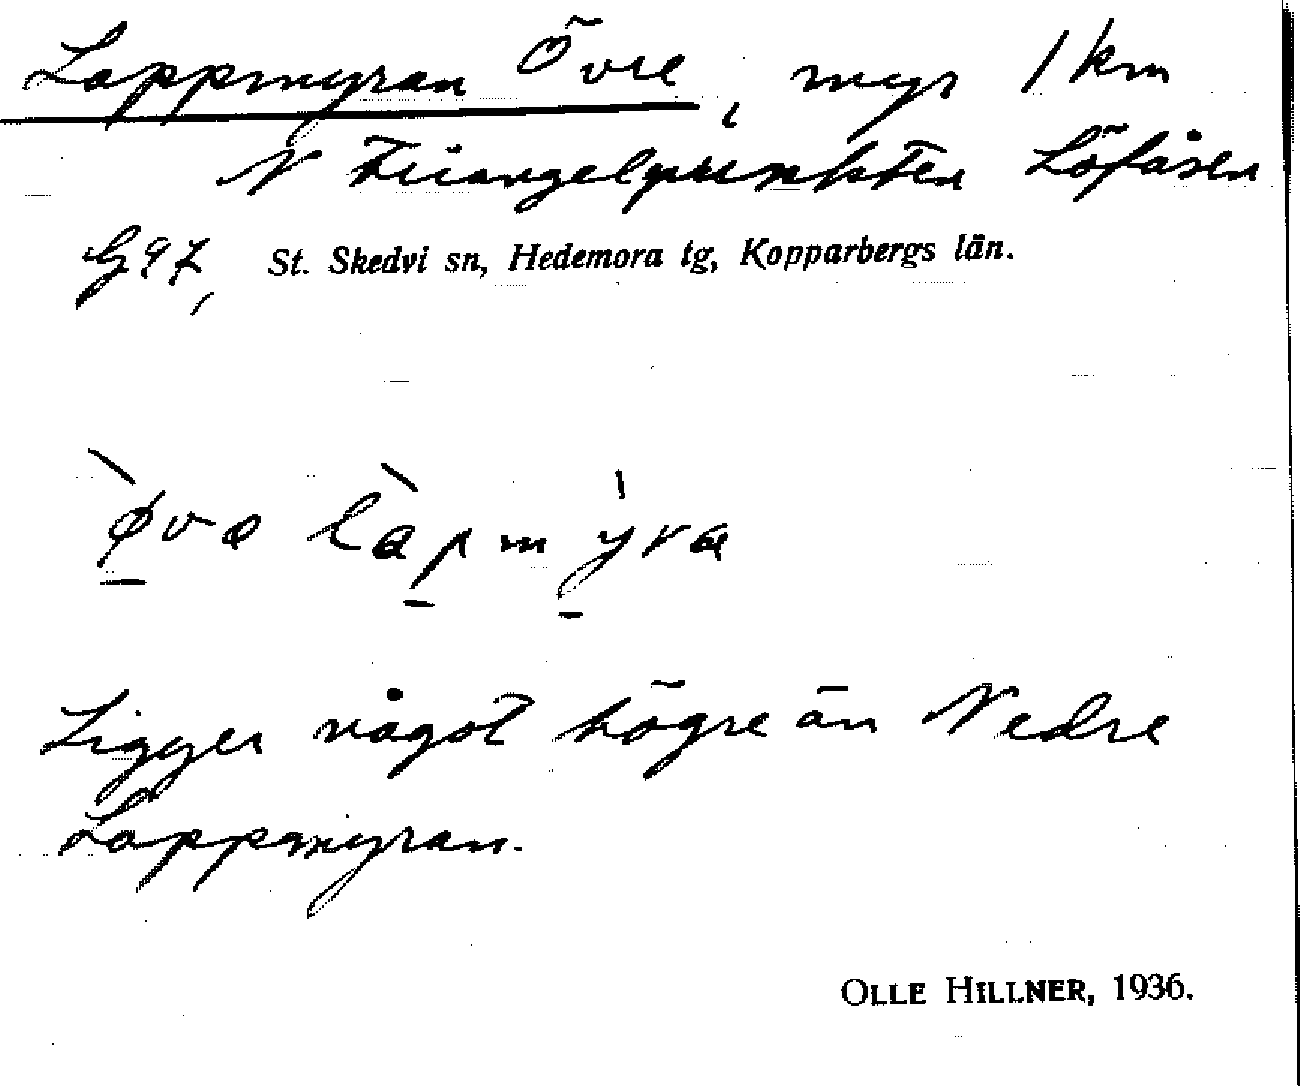 Lappmyran Övre, myr 1 km
N triangelpunkten Löfåsen
G97, St. Skedvi sn, Hedemora tg, Kopparbergs län.
Ligger något högre än Nedre
Lappmyran.
OLLE HILLNER, 1936.